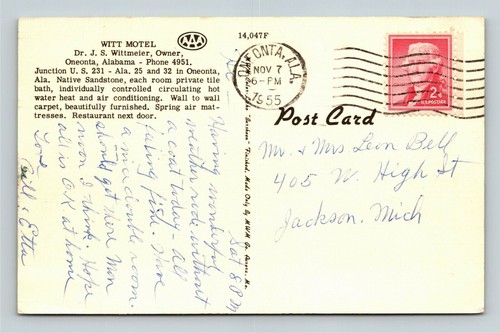 WITT MOTEL
AAA
Dr. J. S. Wittmeier, Owner,
Oneonta, Alabama - Phone 4951.
Junction U. S. 231 - Ala. 25 and 32 in Oneonta,
Ala. Native Sandstone, each room private tile
bath, individually controlled circulating hot
water heat and air conditioning. Wall to wall
carpet, beautifully furnished. Spring air mat-
tresses. Restaurant next door.
14,047F
ONEONTA, ALA.
NOV 7
6-PM
1955
2¢
U.S. POSTAGE
Post Card
Mr. & Mrs Leon Bell
405 W. High St
Jackson, Mich
Sat 8 PM
Having wonderful
weather rode without
a coat today - all
feeling fine. Have
a nice double room.
should get there Mon
noon I think. Hope
all is OK at home
Love
Bill & Etta